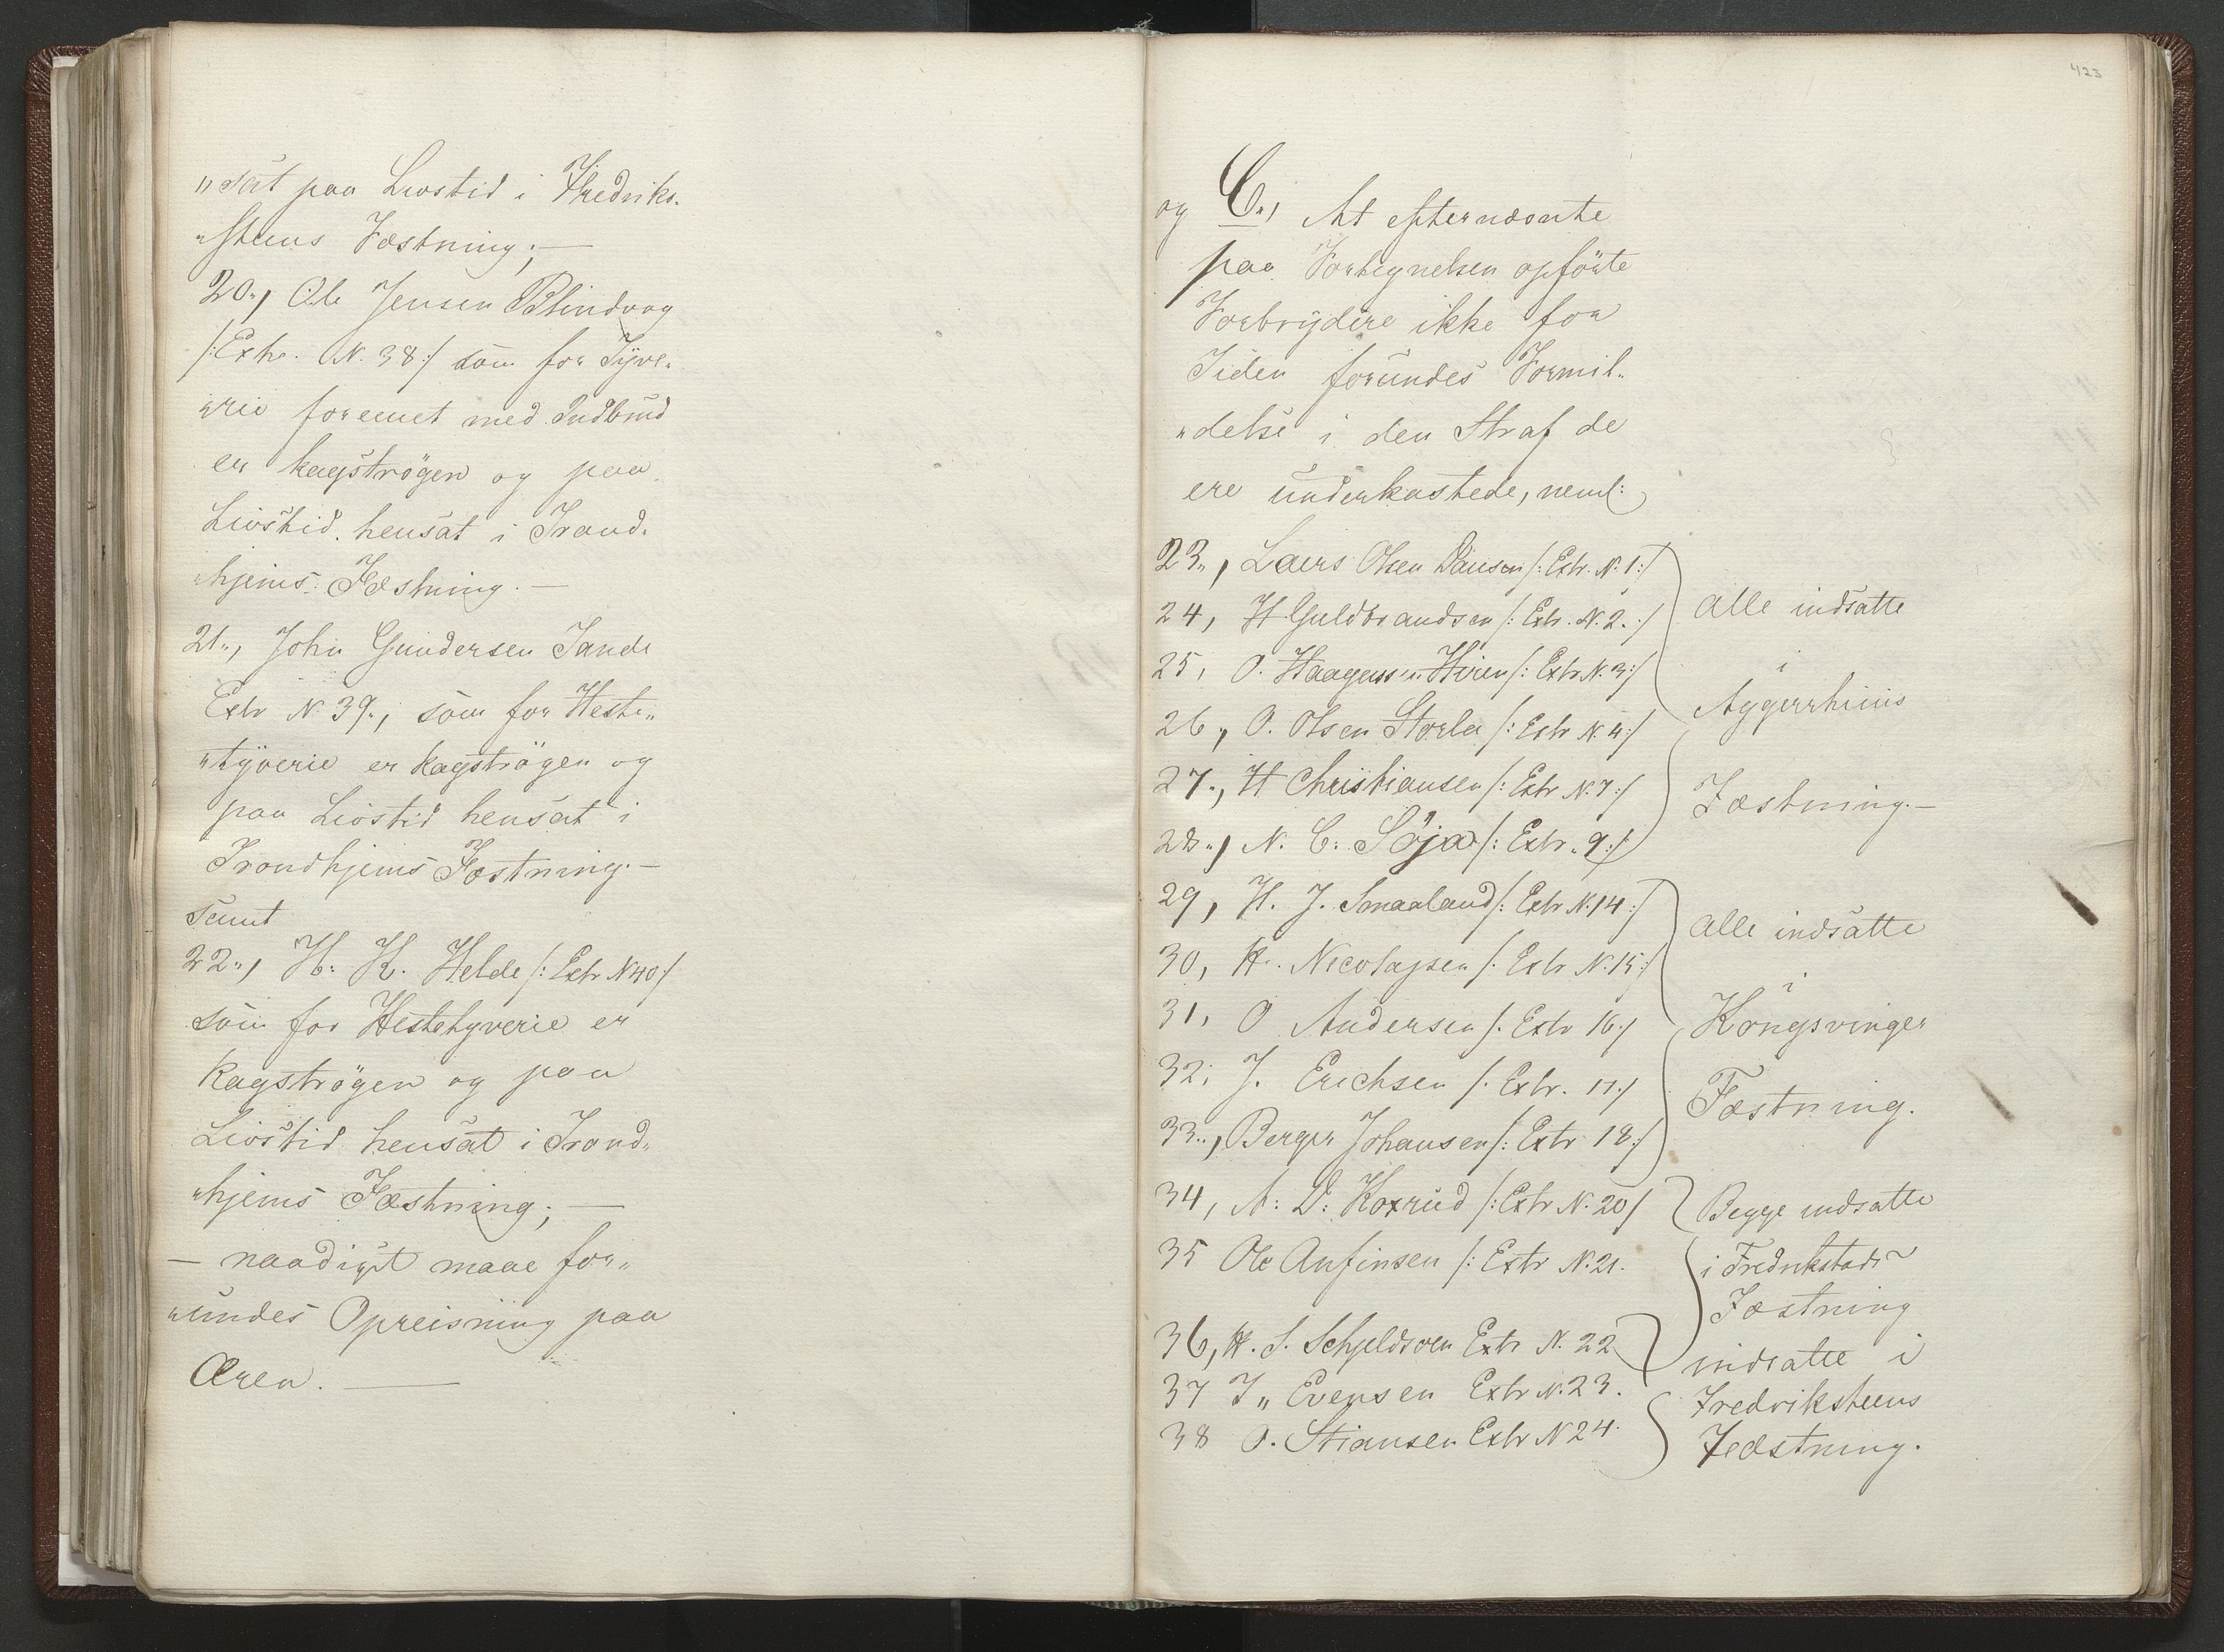 „sat paa Livstid i Fredriks„
„steens Fæstning; —
20„, Ole Jensen Blindvog
/: Extr. N. 38 :/ som for Tyve„
„rie forenet med Indbrud
er kagströgen og paa
Livstid hensat i Trond„
„hjems Fæstning. —
21„, John Gundersen Sande
Extr N. 39., som for Heste„
„tyverie er Kagströgen og
paa Livstid hensat i
Trondhjems Fæstning. —
samt
22„, H: H. Helde /: Extr N 40 :/
som for Hestetyverie er
Kagströgen og paa
Livstid hensat i Trond„
„hjems Fæstning; —
— naadigst maae for„
„undes Opreisning paa
Æren. —
423
og C„, At efternævnte
paa Fortegnelsen opförte
Forbrydere ikke for
Tiden forundes Formil„
„delse i den Straf de
ere underkastede, neml:
23„, Laers Olsen Dansen /: Extr. N. 1 :/
24, H. Guldbrandsen /: Extr. N. 2. :/
alle indsatte
25, O. Haagensen Hviren /: Extr N. 3 :/
i
26„, O. Olsen Storla /: Extr N. 4 :/
Aggerrhuus
27„, H Christiansen /: Extr N. 7 :/
Fæstning. —
28„, N. C. Söja /: Extr. 9 :/
29, H. J. Smaaland /: Extr N. 14 :/
alle indsatte
30, H. Nicolaysen /: Extr N. 15 :/
i
31, O Andersen /: Extr 16 :/
Kongsvinger
32, J. Erichsen /: Extr. 17 :/
Fæstning.
33„, Berger Johansen /: Extr 18 :/
34, A: D: Koxrud /: Extr N. 20 /
Begge indsatte
35 Ole Anfinsen /: Extr N. 21.
i Fredrikstads
Fæstning
36, H. S. Schjeldsoen Extr N. 22
indsatte i
37 J„ Evensen Extr N. 23.
Fredriksteens
38 O. Stiansen Extr N 24.
Fæstning.